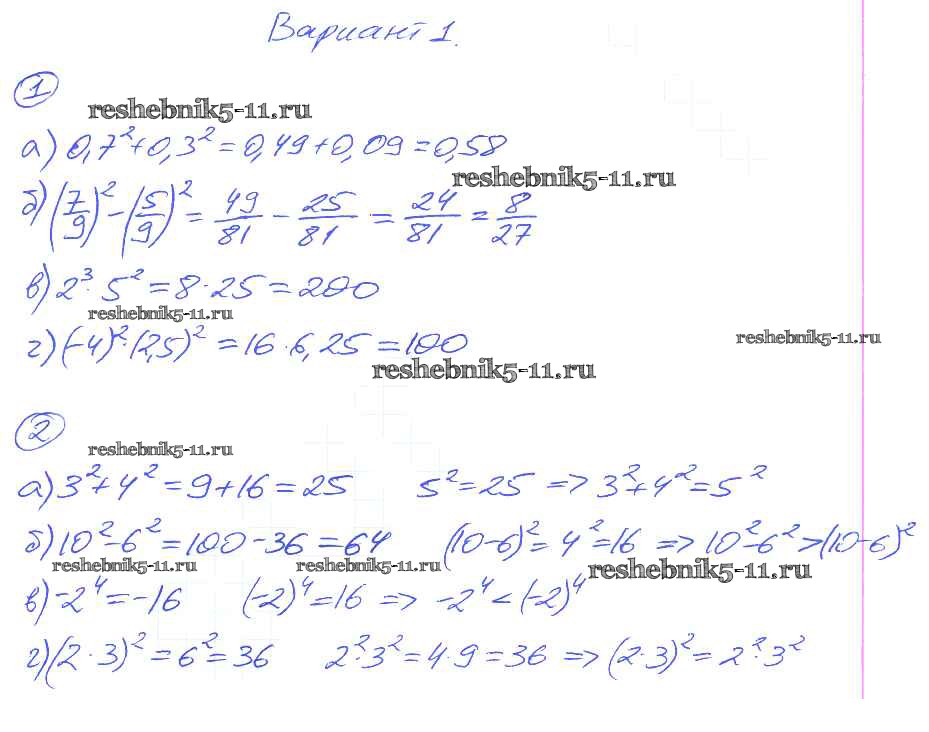 Вариант 1.
1
reshebnik5-11.ru
а) 0,7² + 0,3² = 0,49 + 0,09 = 0,58
reshebnik5-11.ru
б) (7/9)² - (5/9)² = 49/81 - 25/81 = 24/81 = 8/27
в) 2³ · 5² = 8 · 25 = 200
reshebnik5-11.ru
г) (-4)² · (2,5)² = 16 · 6,25 = 100
reshebnik5-11.ru
reshebnik5-11.ru
2
reshebnik5-11.ru
а) 3² + 4² = 9 + 16 = 25 5² = 25 => 3² + 4² = 5²
б) 10² - 6² = 100 - 36 = 64 (10-6)² = 4² = 16 => 10² - 6² > (10-6)²
reshebnik5-11.ru reshebnik5-11.ru reshebnik5-11.ru
в) -2⁴ = -16 (-2)⁴ = 16 => -2⁴ < (-2)⁴
г) (2 · 3)² = 6² = 36 2² · 3² = 4 · 9 = 36 => (2 · 3)² = 2² · 3²